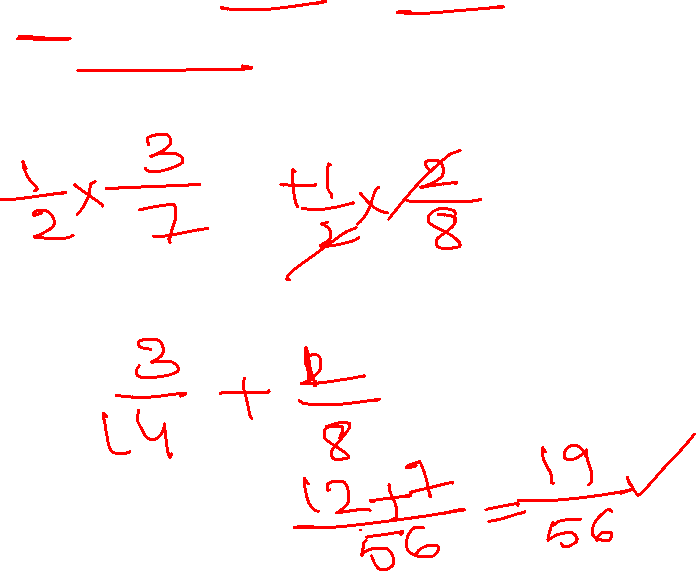 1/2 × 3/7 + 1/2 × 2/8
3/14 + 1/8
12+7/56 = 19/56 ✓